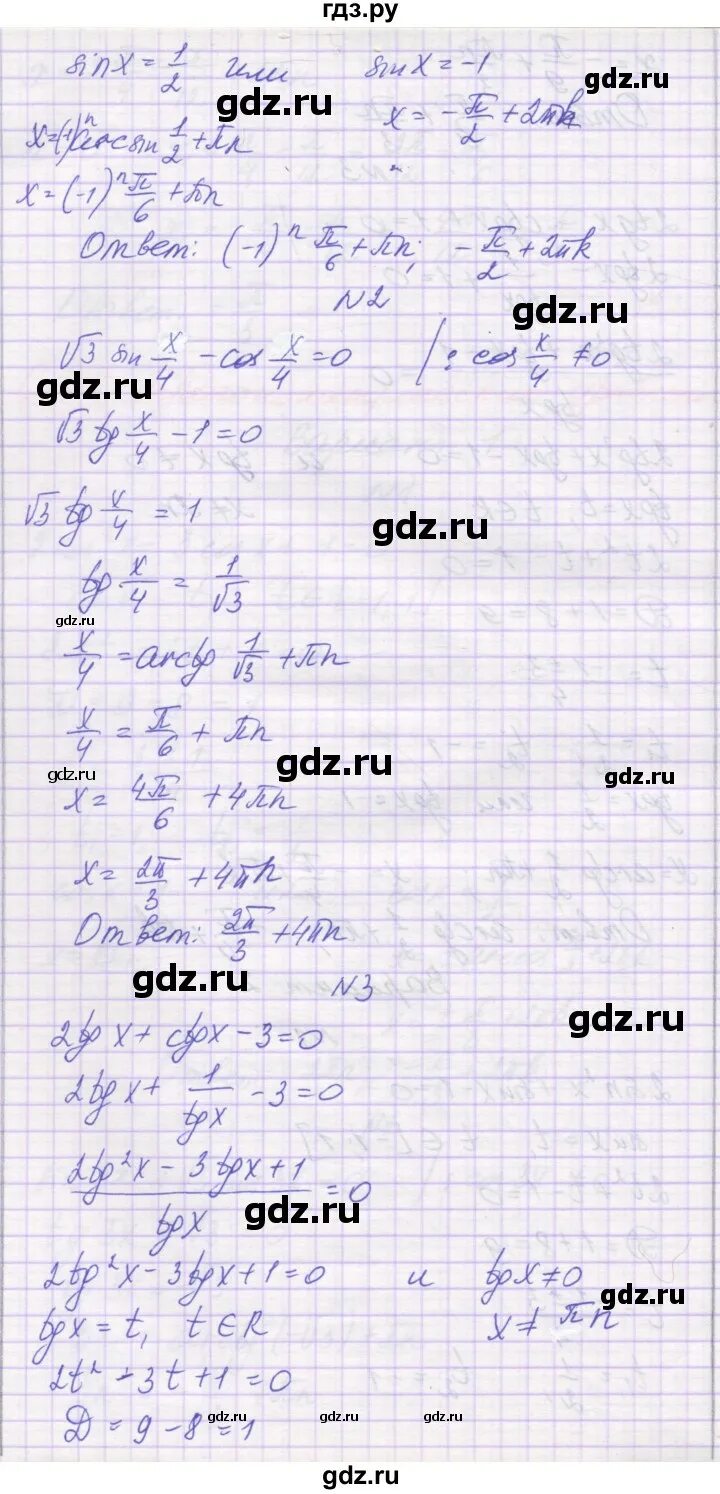 гдз.ру
sin x = 1/2 или sin x = -1
gdz.ru
x = (-1)ⁿ arcsin 1/2 + πn x = -π/2 + 2πk
gdz.ru
x = (-1)ⁿ π/6 + πn
Ответ: (-1)ⁿ π/6 + πn; -π/2 + 2πk
N2
gdz.ru
√3 sin x/4 - cos x/4 = 0 | : cos x/4 ≠ 0
gdz.ru
√3 tg x/4 - 1 = 0
√3 tg x/4 = 1
gdz.ru
tg x/4 = 1/√3
gdz.ru
gdz.ru
x/4 = arctg 1/√3 + πn
x/4 = π/6 + πn
gdz.ru
gdz.ru
gdz.ru
x = 4π/6 + 4πn
x = 2π/3 + 4πn
Ответ: 2π/3 + 4πn
gdz.ru
N3
gdz.ru
2tg x + ctg x - 3 = 0
2tg x + 1/tg x - 3 = 0
(2tg²x - 3tg x + 1)/tg x = 0
gdz.ru
2tg²x - 3tg x + 1 = 0 и tg x ≠ 0
gdz.ru
tg x = t, t ∈ R x ≠ πn
2t² - 3t + 1 = 0
D = 9 - 8 = 1
gdz.ru gdz.ru gdz.ru
gdz.ru